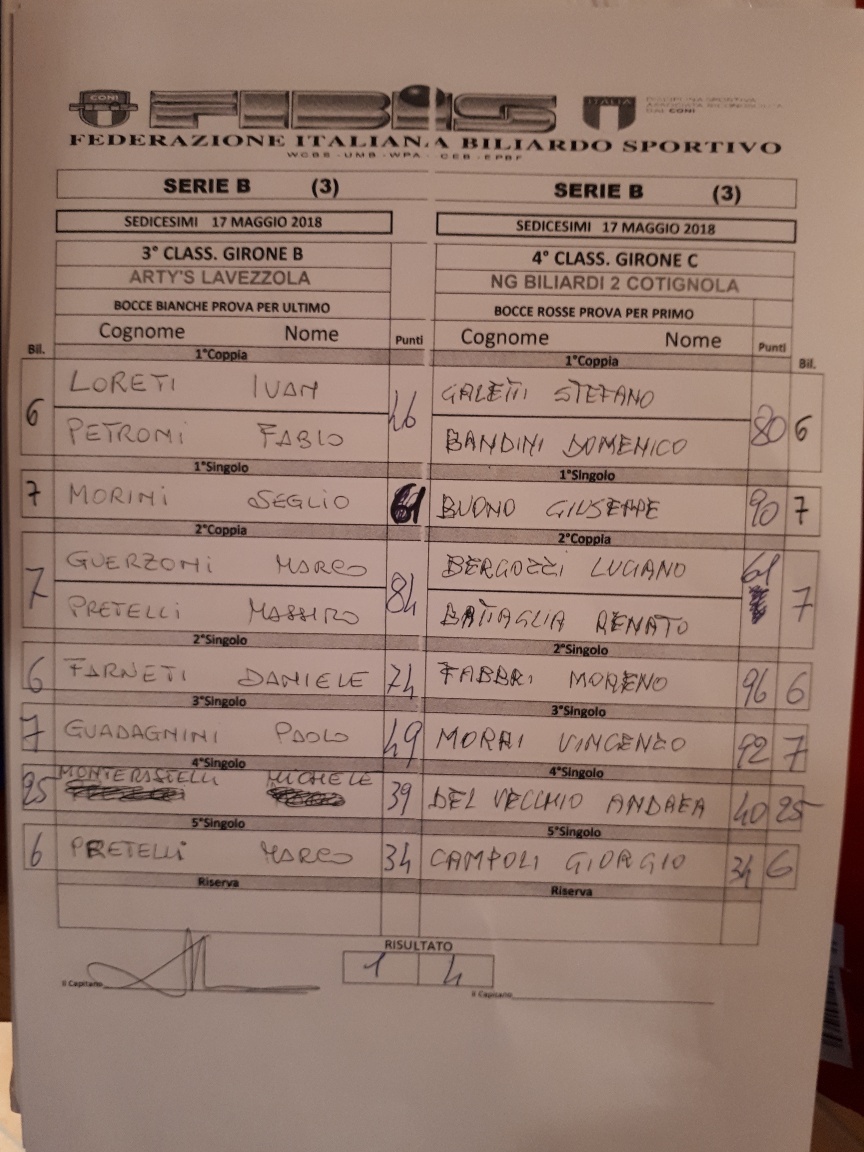 CONI FIBIS ITALIA DISCIPLINA SPORTIVA
ASSOCIATA RICONOSCIUTA
DAL CONI
FEDERAZIONE ITALIANA BILIARDO SPORTIVO
WCBS - UMB - WPA - CEB - EPBF
SERIE B (3) SERIE B (3)
SEDICESIMI 17 MAGGIO 2018 SEDICESIMI 17 MAGGIO 2018
3° CLASS. GIRONE B 4° CLASS. GIRONE C
ARTY'S LAVEZZOLA NG BILIARDI 2 COTIGNOLA
BOCCE BIANCHE PROVA PER ULTIMO BOCCE ROSSE PROVA PER PRIMO
Bil. Cognome Nome Punti Cognome Nome Punti Bil.
1°Coppia 1°Coppia
LORETI IVAN GALETTI STEFANO
6 46 80 6
PETRONI FABIO BANDINI DOMENICO
1°Singolo 1°Singolo
7 MORINI SEGLIO 61 BUONO GIUSEPPE 90 7
2°Coppia 2°Coppia
GUERZONI MARCO BERGOZZI LUCIANO 61
7 84 7
PRETELLI MASSIMO BATTAGLIA RENATO
2°Singolo 2°Singolo
6 FARNETI DANIELE 74 FABBRI MORENO 96 6
3°Singolo 3°Singolo
7 GUADAGNINI PAOLO 49 MORRI VINCENZO 92 7
4°Singolo 4°Singolo
25 MONTERASTELLI MICHELE 39 DEL VECCHIO ANDREA 40 25
5°Singolo 5°Singolo
6 PRETELLI MARCO 34 CAMPOLI GIORGIO 34 6
Riserva Riserva
RISULTATO
1 4
Il Capitano Il Capitano